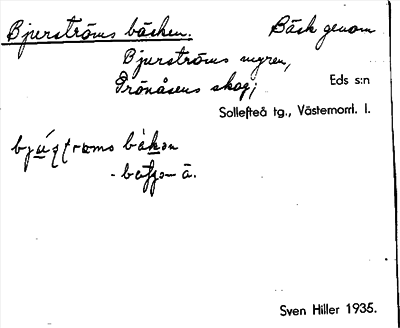 Bjurströms bäcken. Bäck genom
Bjurströms myren,
Grönåsens skog; Eds s:n
Sollefteå tg., Västernorrl. l.
Sven Hiller 1935.